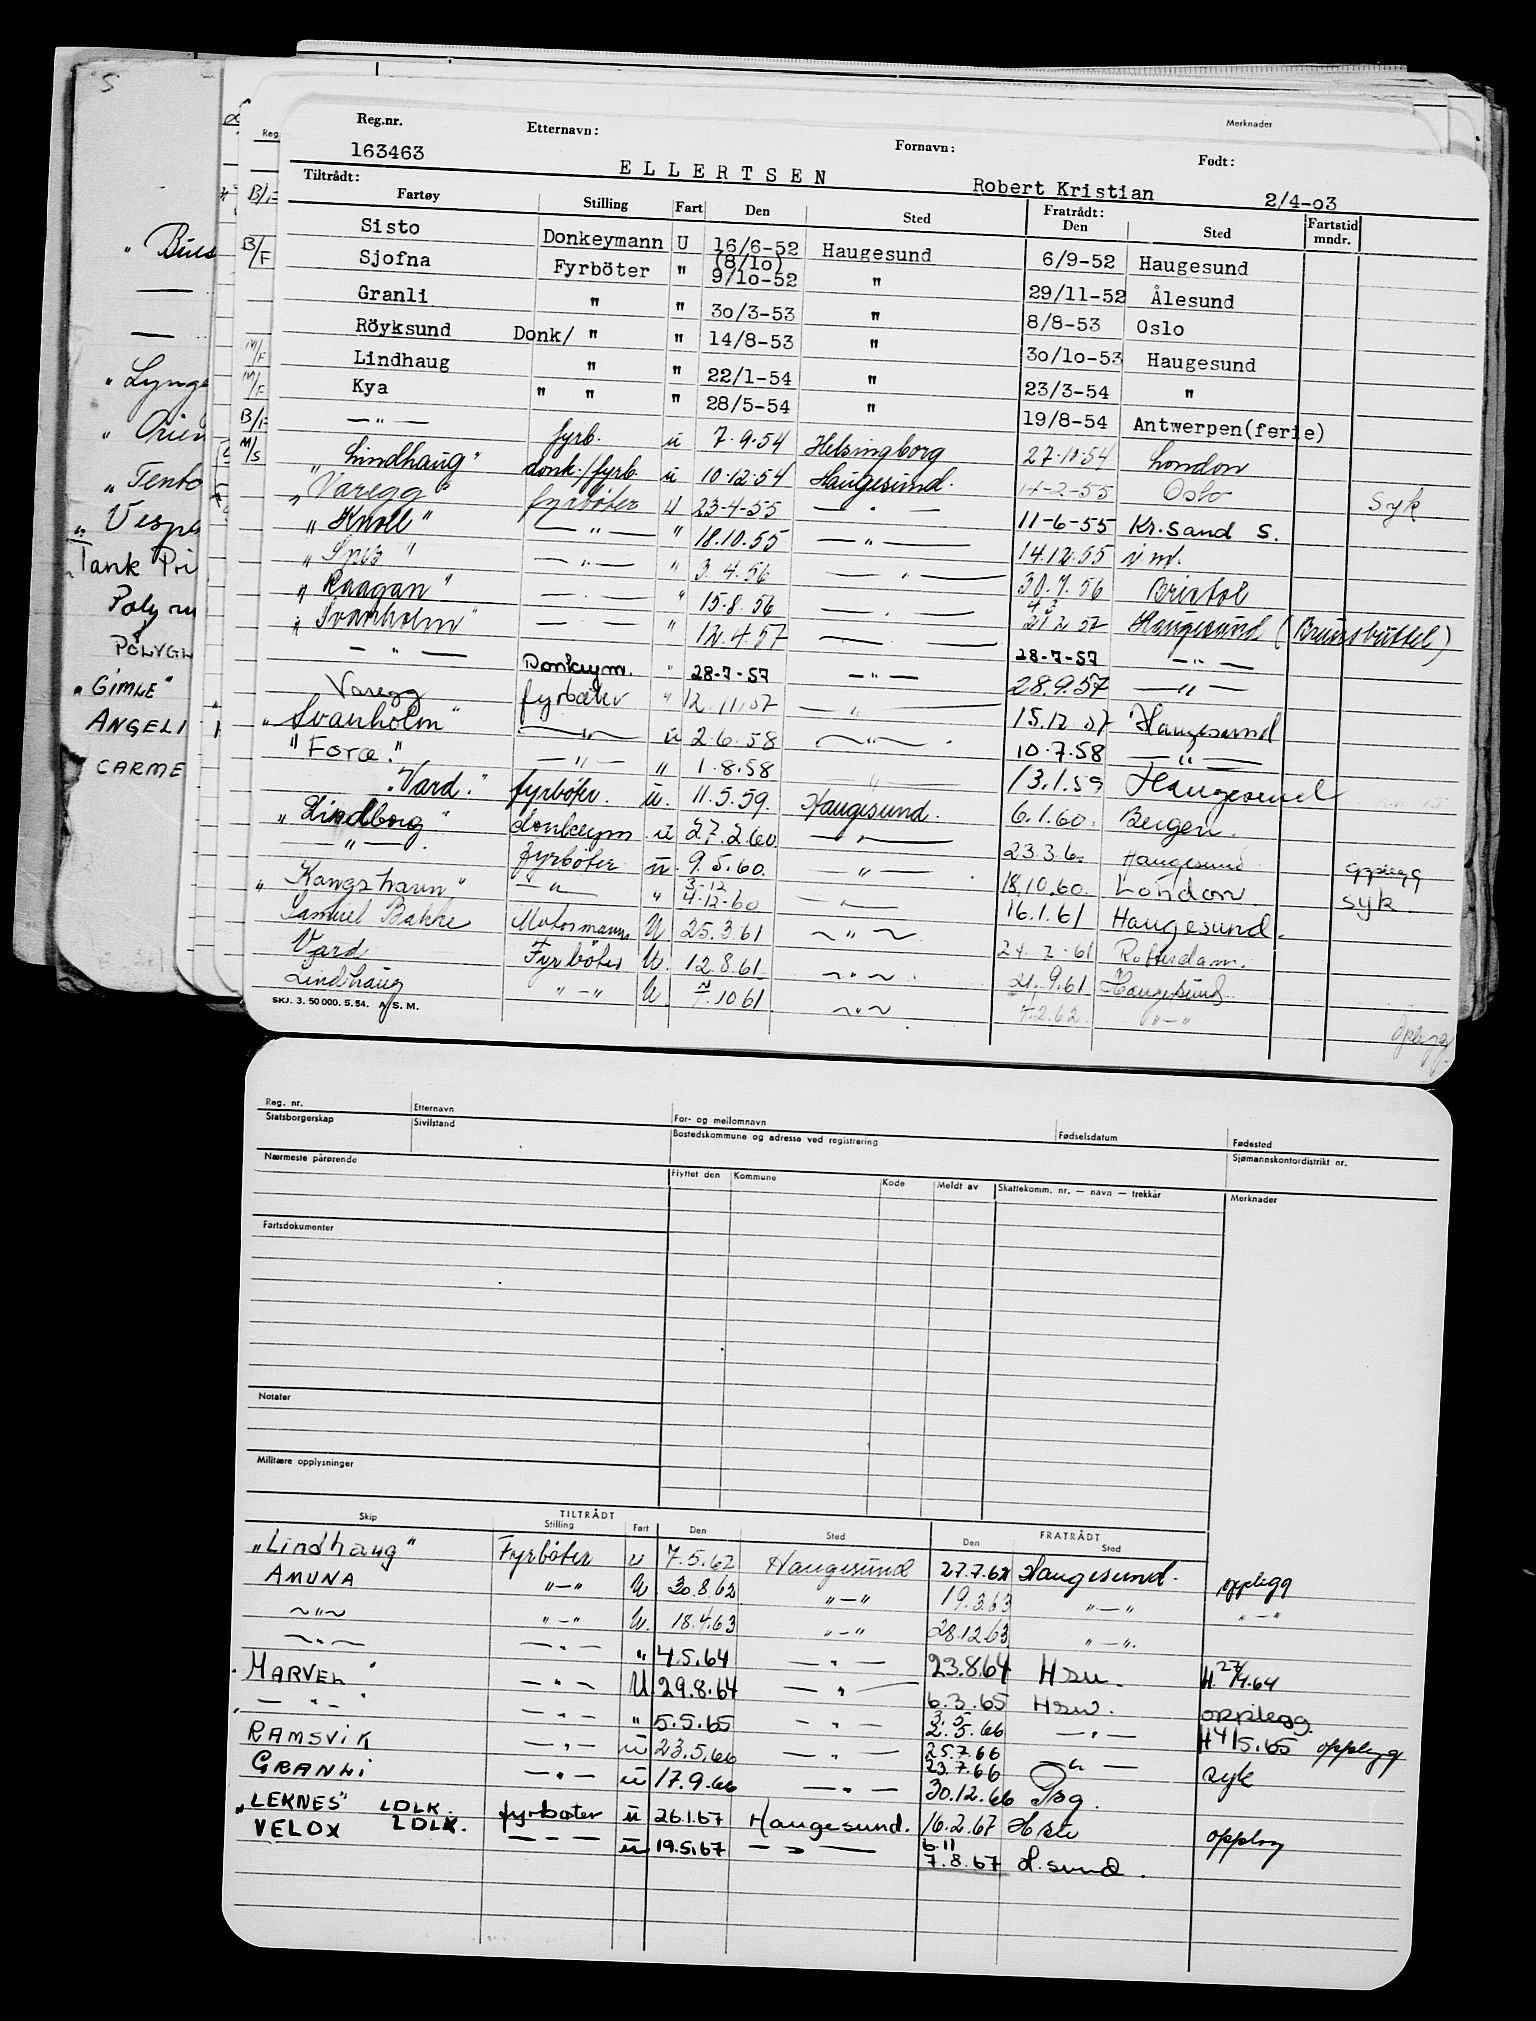 S
Bius
"Lynge
"Orien
"Tento
"Vespa
Tank Pri
Poly ru
POLYGL
"GIMLE"
ANGELI
CARME
Merknader
Reg.nr. Etternavn: Fornavn: Født:
163463 ELLERTSEN Robert Kristian 2/4-03
Tiltrådt: Fratrådt:
Fartøy Stilling Fart Den Sted Den Sted Fartstid mndr.
Sisto Donkeymann U 16/6-52 Haugesund 6/9-52 Haugesund
B/F Sjofna Fyrböter " (8/10) 9/10-52 " 29/11-52 Ålesund
Granli " " 30/3-53 " 8/8-53 Oslo
Röyksund Donk/ " " 14/8-53 " 30/10-53 Haugesund
M/F Lindhaug " " 22/1-54 " 23/3-54 "
M/F Kya " " " 28/5-54 " 19/8-54 Antwerpen(ferie)
B/F —"— fyrb. u 7.9.54 Helsingborg 27.10.54 London
M/S "Lindhaug" donk./fyrb. u 10.12.54 Haugesund. 14-2-55 Oslo Syk
"Varegg" fyrbøter u 23-4-55 —"— 11-6-55 Kr.sand S.
"Knoll" —"— " 18.10.55 —"— 14.12.55
—"— " 3.4.56 —"— 30.7.56 Bristol
"Raagan" —"— " 15.8.56 —"— Haugesund (Brunsbuttel)
"Svanholm" —"— " 12.4.57 —"— 28-7-57 —"—
—"— Donkeym. " 28-7-57 —"— 28.9.57 —"—
Varegg fyrbøter " 12.11.57 —"— 15.12.57 Haugesund
"Svanholm" —"— u 2.6.58 —"— 10.7.58 —"—
"Force." —"— " 1.8.58 —"— 13.1.59 Haugesund
"Vard." fyrbøter. u. 11.5.59. Haugesund. 6.1.60. Bergen.
"Lindborg" donkeym u 27.2.60 —"— 23.3.6. Haugesund opplegg
—"— fyrbøter u. 9.5.60. —"— 18.10.60. London syk.
"Kongshavn" —"— " 3-12 4-12-60 —"— 16.1.61 Haugesund.
Samuel Bakke Motormann U 25.3.61 —"— 24.7.61 Rotterdam.
Vard Fyrbøter U. 12.8.61. —"— 21.9.61 Haugesund.
Lindhaug "—" U. 7.10.61 —"— 7.2.62. "—" Opplegg
SKJ. 3. 50 000. 5.54. A/S. M.
Reg. nr. Etternavn For- og mellomnavn Fødselsdatum Fødested
Statsborgerskap Sivilstand Bostedskommune og adresse ved registrering Sjømannskontordistrikt nr.
Nærmeste pårørende Flyttet den Kommune Kode Meldt av Skattekomm. nr. — navn — trekkår Merknader
Fartsdokumenter
Notater
Militære opplysninger
TILTRÅDT FRATRÅDT
Skip Stilling Fart Den Sted Den Sted
"Lindhaug" Fyrbøter u 7.5.62 Haugesund 27.7.62 Haugesund. opplegg
AMUNA "—" U 30.8.62 "—" 19.3.63 "—" "—"
—"— "—" U. 18.4.63 "—" 28.12.63 "—".
—"— —"— " 4.5.64 —"— 23.8.64 Hsu. H. 27/4.64
"MARVEL" —"— U 29.8.64 —"— 6.3.65 Hsu. opplegg.
—"— —"— " 5.5.65 —"— 3.5 2.5.66 —"— H 4/5.65 opplegg
RAMSVIK —"— u 23.5.66 —"— 25.7.66 23.7.66 —"— syk
GRANLI —"— u 17.9.66 —"— 30.12.66
"LEKNES" LDLK. fyrbøter u 26.1.67 Haugesund. 16.2.67 opplegg
VELOX LDLX. —"— u 19.5.67 —"— 6.11 7.8.67 H.sund.